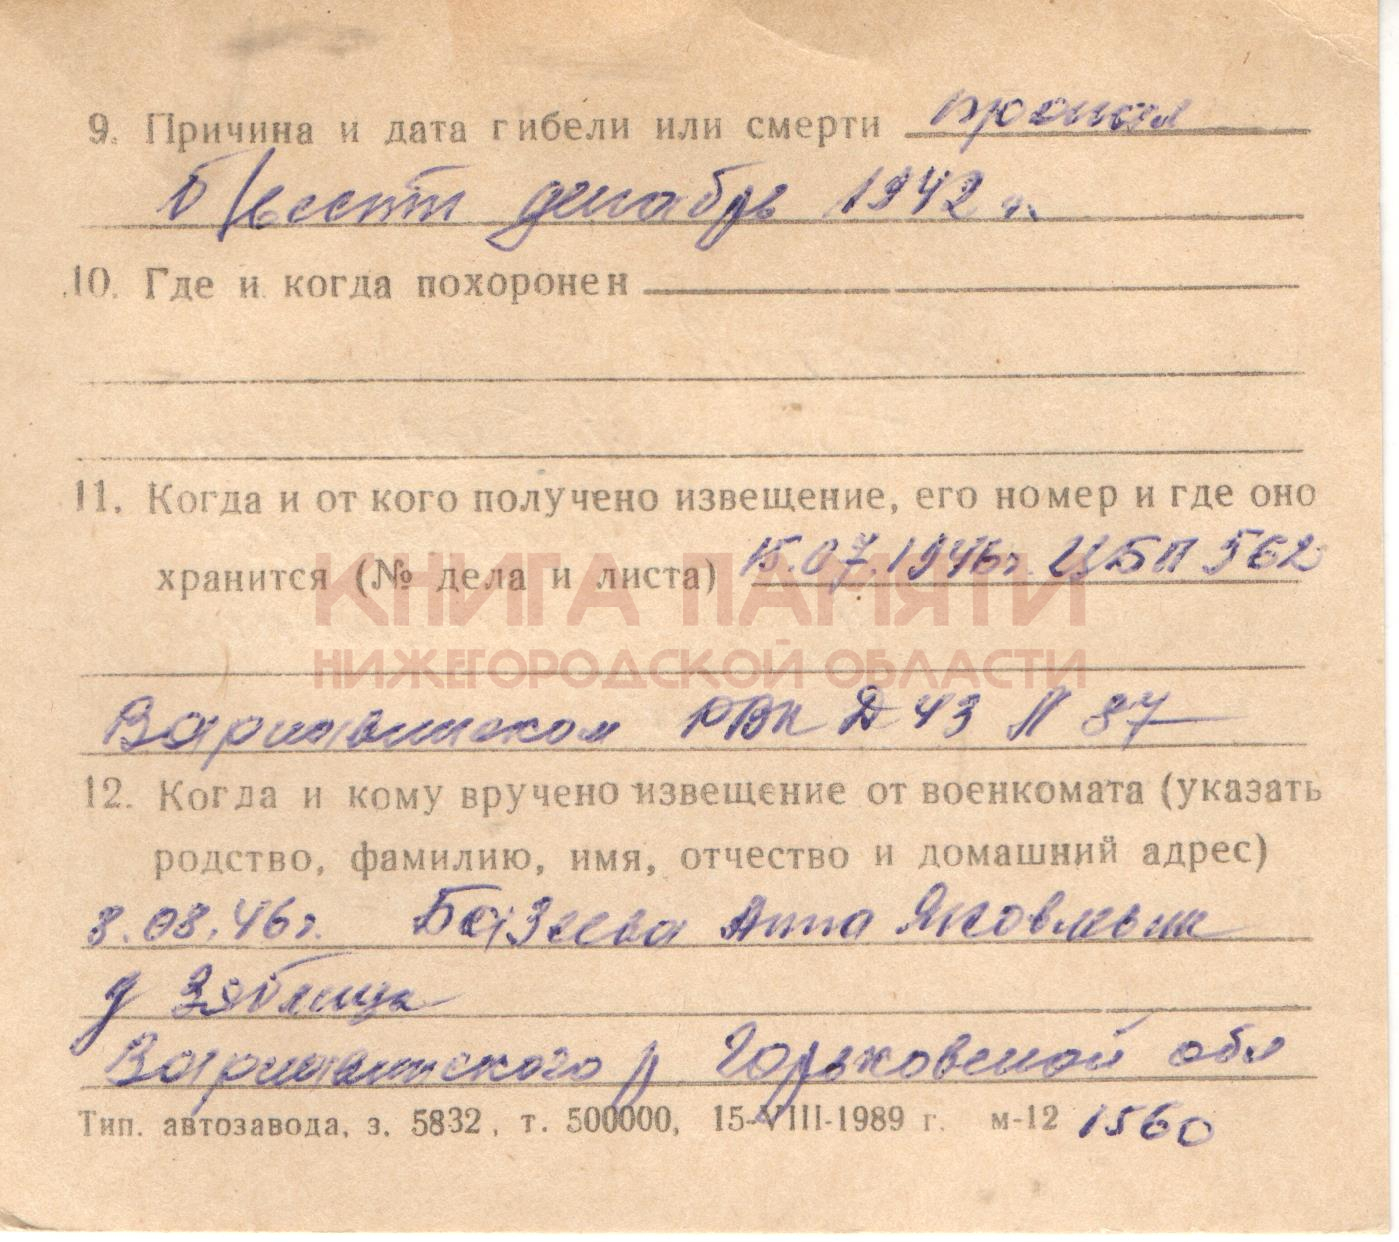 9. Причина и дата гибели или смерти пропал
б/вести декабрь 1942 г.
10. Где и когда похоронен
11. Когда и от кого получено извещение, его номер и где оно
хранится (№ дела и листа) 15.07.1946г. ЦБП 562
КНИГА ПАМЯТИ
НИЖЕГОРОДСКОЙ ОБЛАСТИ
Варнавинском РВК Д 43 Л 87
12. Когда и кому вручено извещение от военкомата (указать
родство, фамилию, имя, отчество и домашний адрес)
8.08.46г. Базеева Анна
д Зяблица
Варнавинского р Горьковской обл
Тип. автозавода, з. 5832, т. 500000, 15-VIII-1989 г. м-12 1560